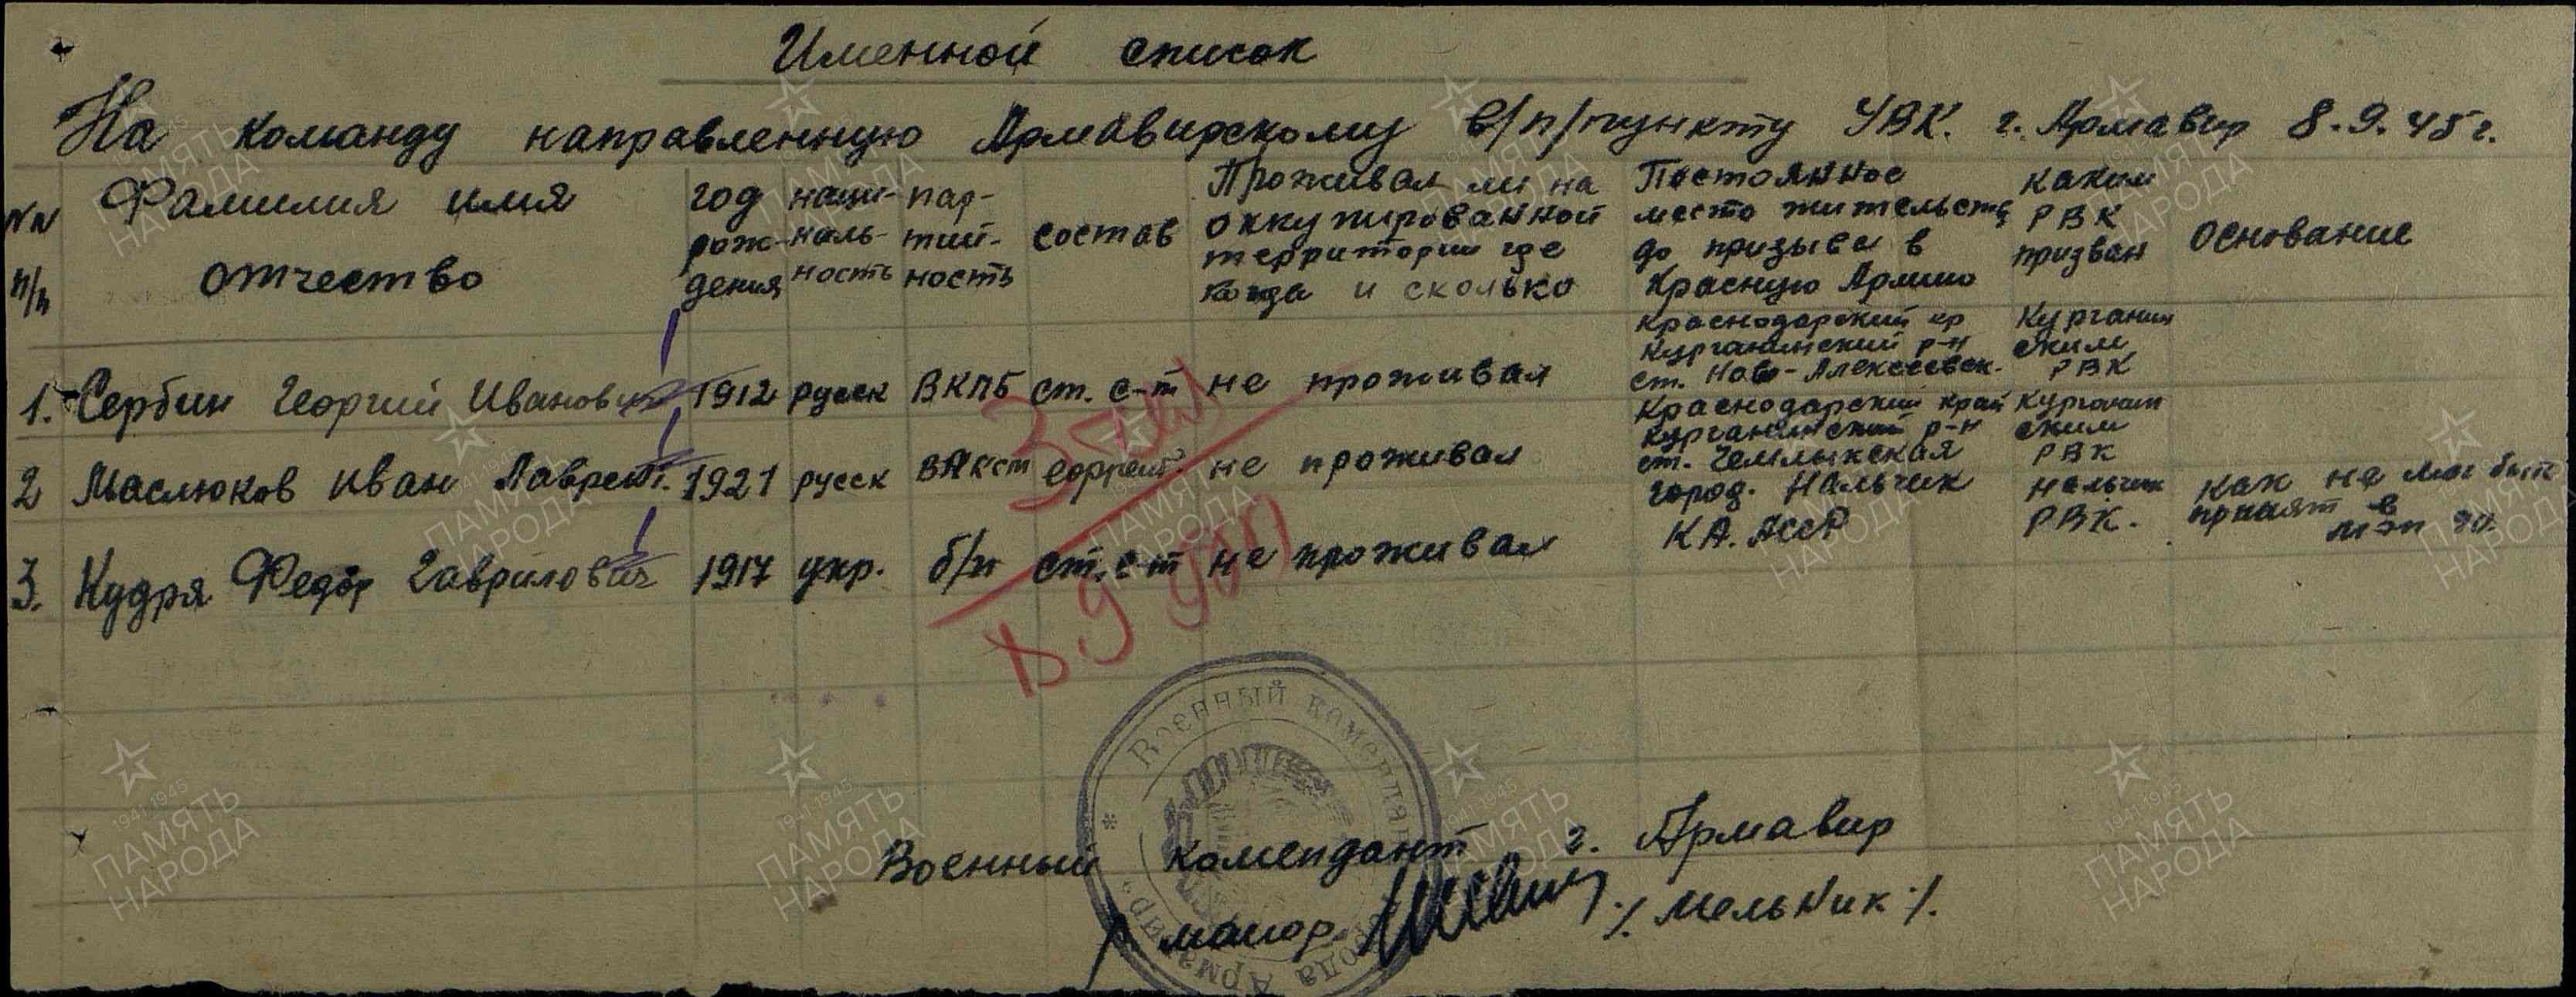 Именной список
На команду направленную Армавирскому в/п/пункту УВК. г. Армавир 8.9.45 г.
NN п/п
Фамилия имя отчество
год рож-дения
наци-наль-ность
пар-тий-ность
состав
Проживал ли на оккупированной территории где когда и сколько
Постоянное место жительств до призыва в Красную Армию
каким РВК призван
Основание
1. Сербин Георгий Иванович 1912 русск ВКПб ст. с-т не проживал Краснодарский кр Курганинский р-н ст. Ново-Алексеевск. Курганинским РВК
2 Маслюков Иван Лаврент. 1921 русск ВЛКсм ефрейт. не проживал Краснодарский край Курганинский р-н ст. Чемлыкская Курганинским РВК
3. Кудря Федор Гаврилович 1917 укр. б/п ст. с-т не проживал город. Нальчик КА. АССР Нальчик РВК. как не мог быть принят в
3
9
Военный комендант г. Армавир
майор
/. Мельник /.
Военный комендант города Армавир
1941 1945
ПАМЯТЬ
НАРОДА